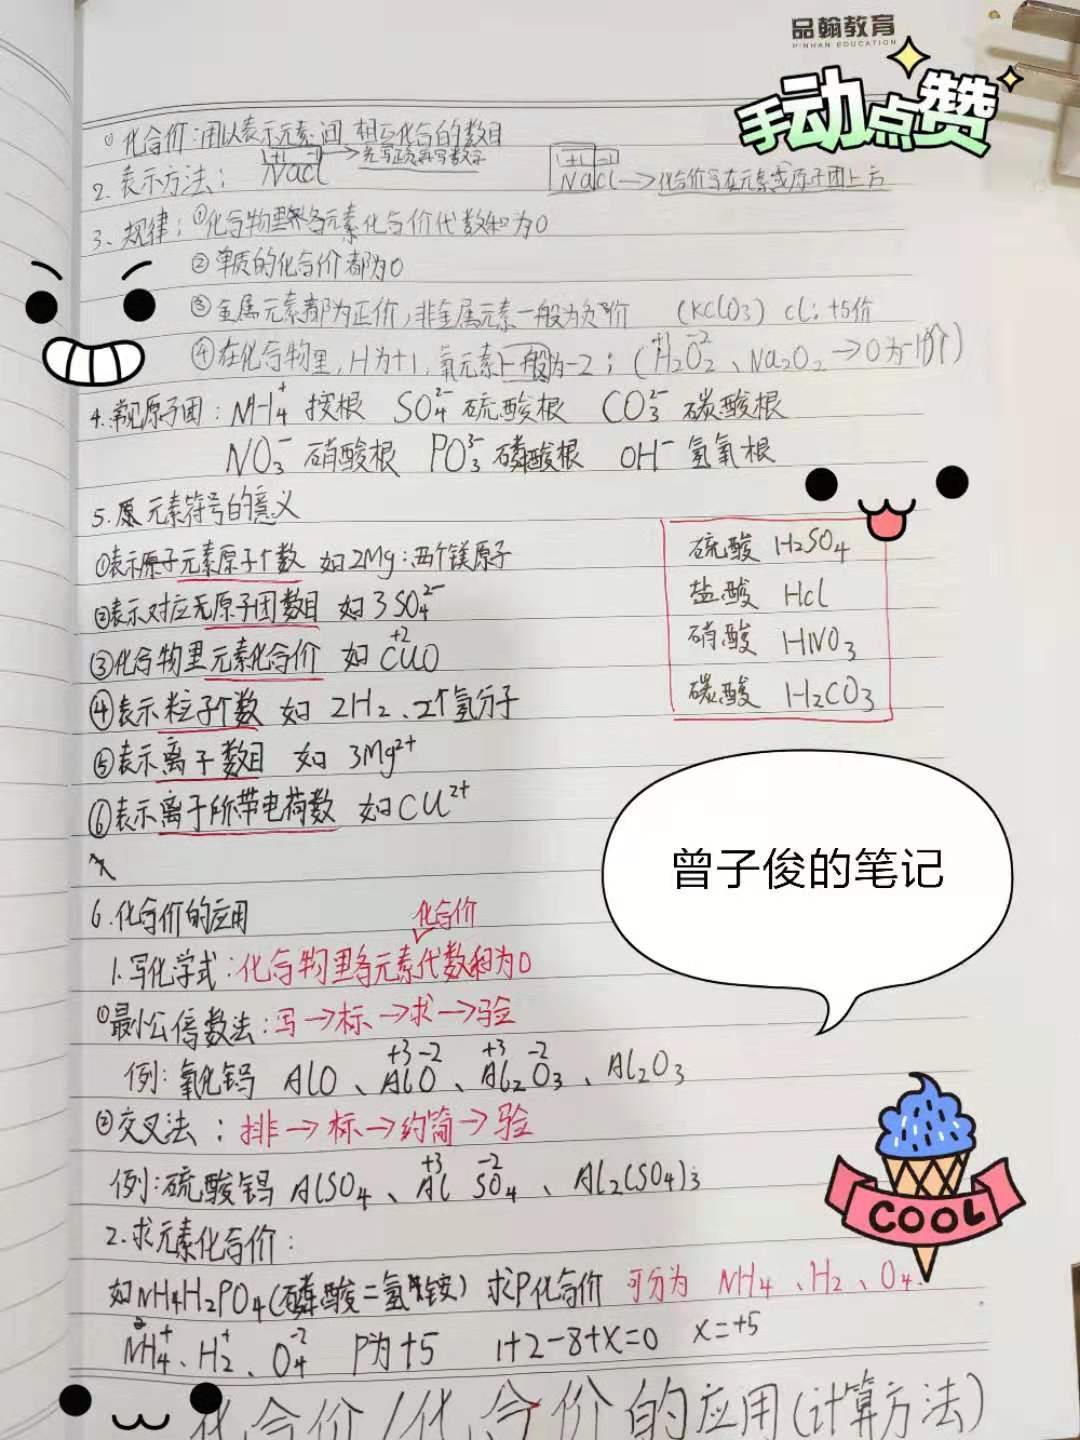 品翰教育
PINHAN EDUCATION
手动点赞
① 化合价：用以表示元素间 相互化合的数目
2. 表示方法： +1 -1 NaCl → 先写正负再写数字 +1 -1 NaCl → 化合价写在元素或原子团上方
3. 规律：①化合物里各元素化合价代数和为0
② 单质的化合价都为0
③ 金属元素都为正价，非金属元素一般为负价 (KClO₃) Cl：+5价
④ 在化合物里，H为+1，氧元素一般为-2；(H₂O₂、Na₂O₂ → O为-1价)
4. 常见原子团：NH₄⁺ 按根 SO₄²⁻ 硫酸根 CO₃²⁻ 碳酸根
NO₃⁻ 硝酸根 PO₃³⁻ 磷酸根 OH⁻ 氢氧根
5. 原元素符号的意义
①表示原子元素原子个数 如2Mg：两个镁原子
②表示对应无原子团数目 如 3SO₄²⁻
③化合物里元素化合价 如 +2 CuO
④表示粒子个数 如 2H₂、2个氢分子
⑤表示离子数目 如 3Mg²⁺
⑥表示离子所带电荷数 如Cu²⁺
硫酸 H₂SO₄
盐酸 HCl
硝酸 HNO₃
碳酸 H₂CO₃
曾子俊的笔记
6. 化合价的应用
化合价
1. 写化学式：化合物里各元素代数和为0
①最小公倍数法：写→标→求→验
例：氧化铝 AlO、+3 -2 AlO、+3 -2 Al₂O₃、Al₂O₃
②交叉法：排→标→约简→验
例：硫酸铝 AlSO₄、+3 -2 Al SO₄、Al₂(SO₄)₃
COOL
2. 求元素化合价：
如NH₄H₂PO₄(磷酸二氢铵) 求P化合价 可分为 NH₄、H₂、O₄.
NH₄⁺、H₂⁺、O₄⁻² P为+5 1+2-8+x=0 x=+5
化合价/化合价的应用(计算方法)